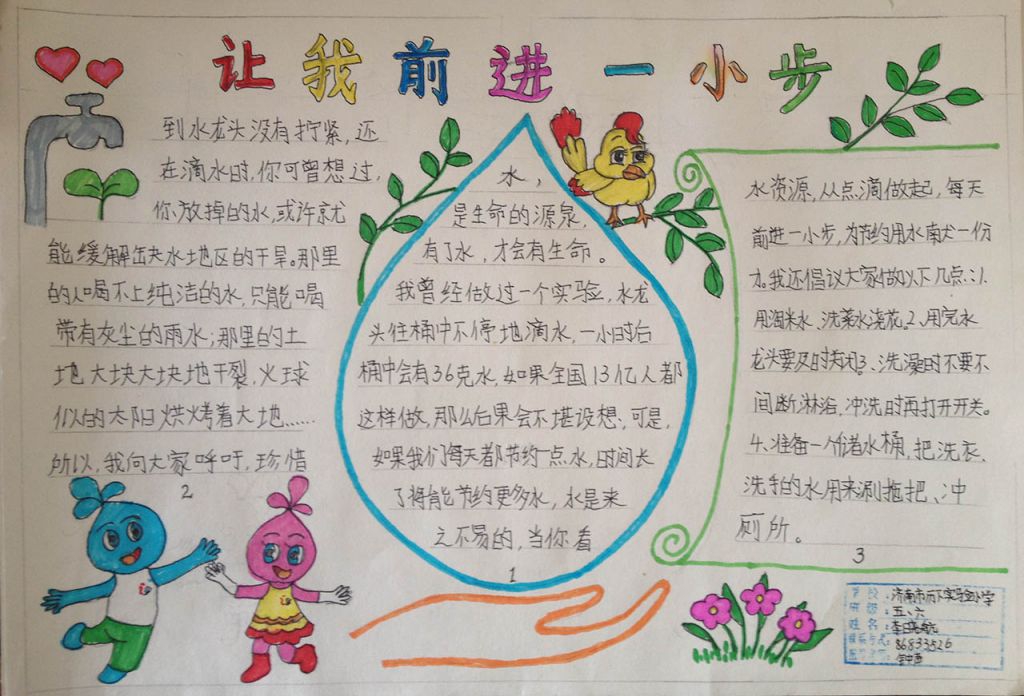 让我前进一小步
水，
是生命的源泉，
有了水，才会有生命。
我曾经做过一个实验，水龙
头往桶中不停地滴水，一小时后
桶中会有36克水，如果全国13亿人都
这样做，那么后果会不堪设想，可是，
如果我们每天都节约一点水，时间长
了将能节约更多水，水是来
之不易的，当你看
1
到水龙头没有拧紧，还
在滴水时，你可曾想过，
你放掉的水，或许就
能缓解缺水地区的干旱。那里
的人喝不上纯洁的水，只能喝
带有灰尘的雨水；那里的土
地大块大块地干裂，火球
似的太阳烘烤着大地……
所以，我向大家呼吁，珍惜
2
水资源，从点滴做起，每天
前进一小步，为节约用水献一份
力。我还倡议大家做以下几点：1.
用淘米水、洗菜水浇花。2、用完水
龙头要及时关闭3、洗澡时不要不
间断淋浴，冲洗时再打开开关。
4.准备一个储水桶，把洗衣、
洗手的水用来涮拖把、冲
厕所。
3
学校：济南市历下实验小学
班级：五、六
姓名：
联系方式：86833526